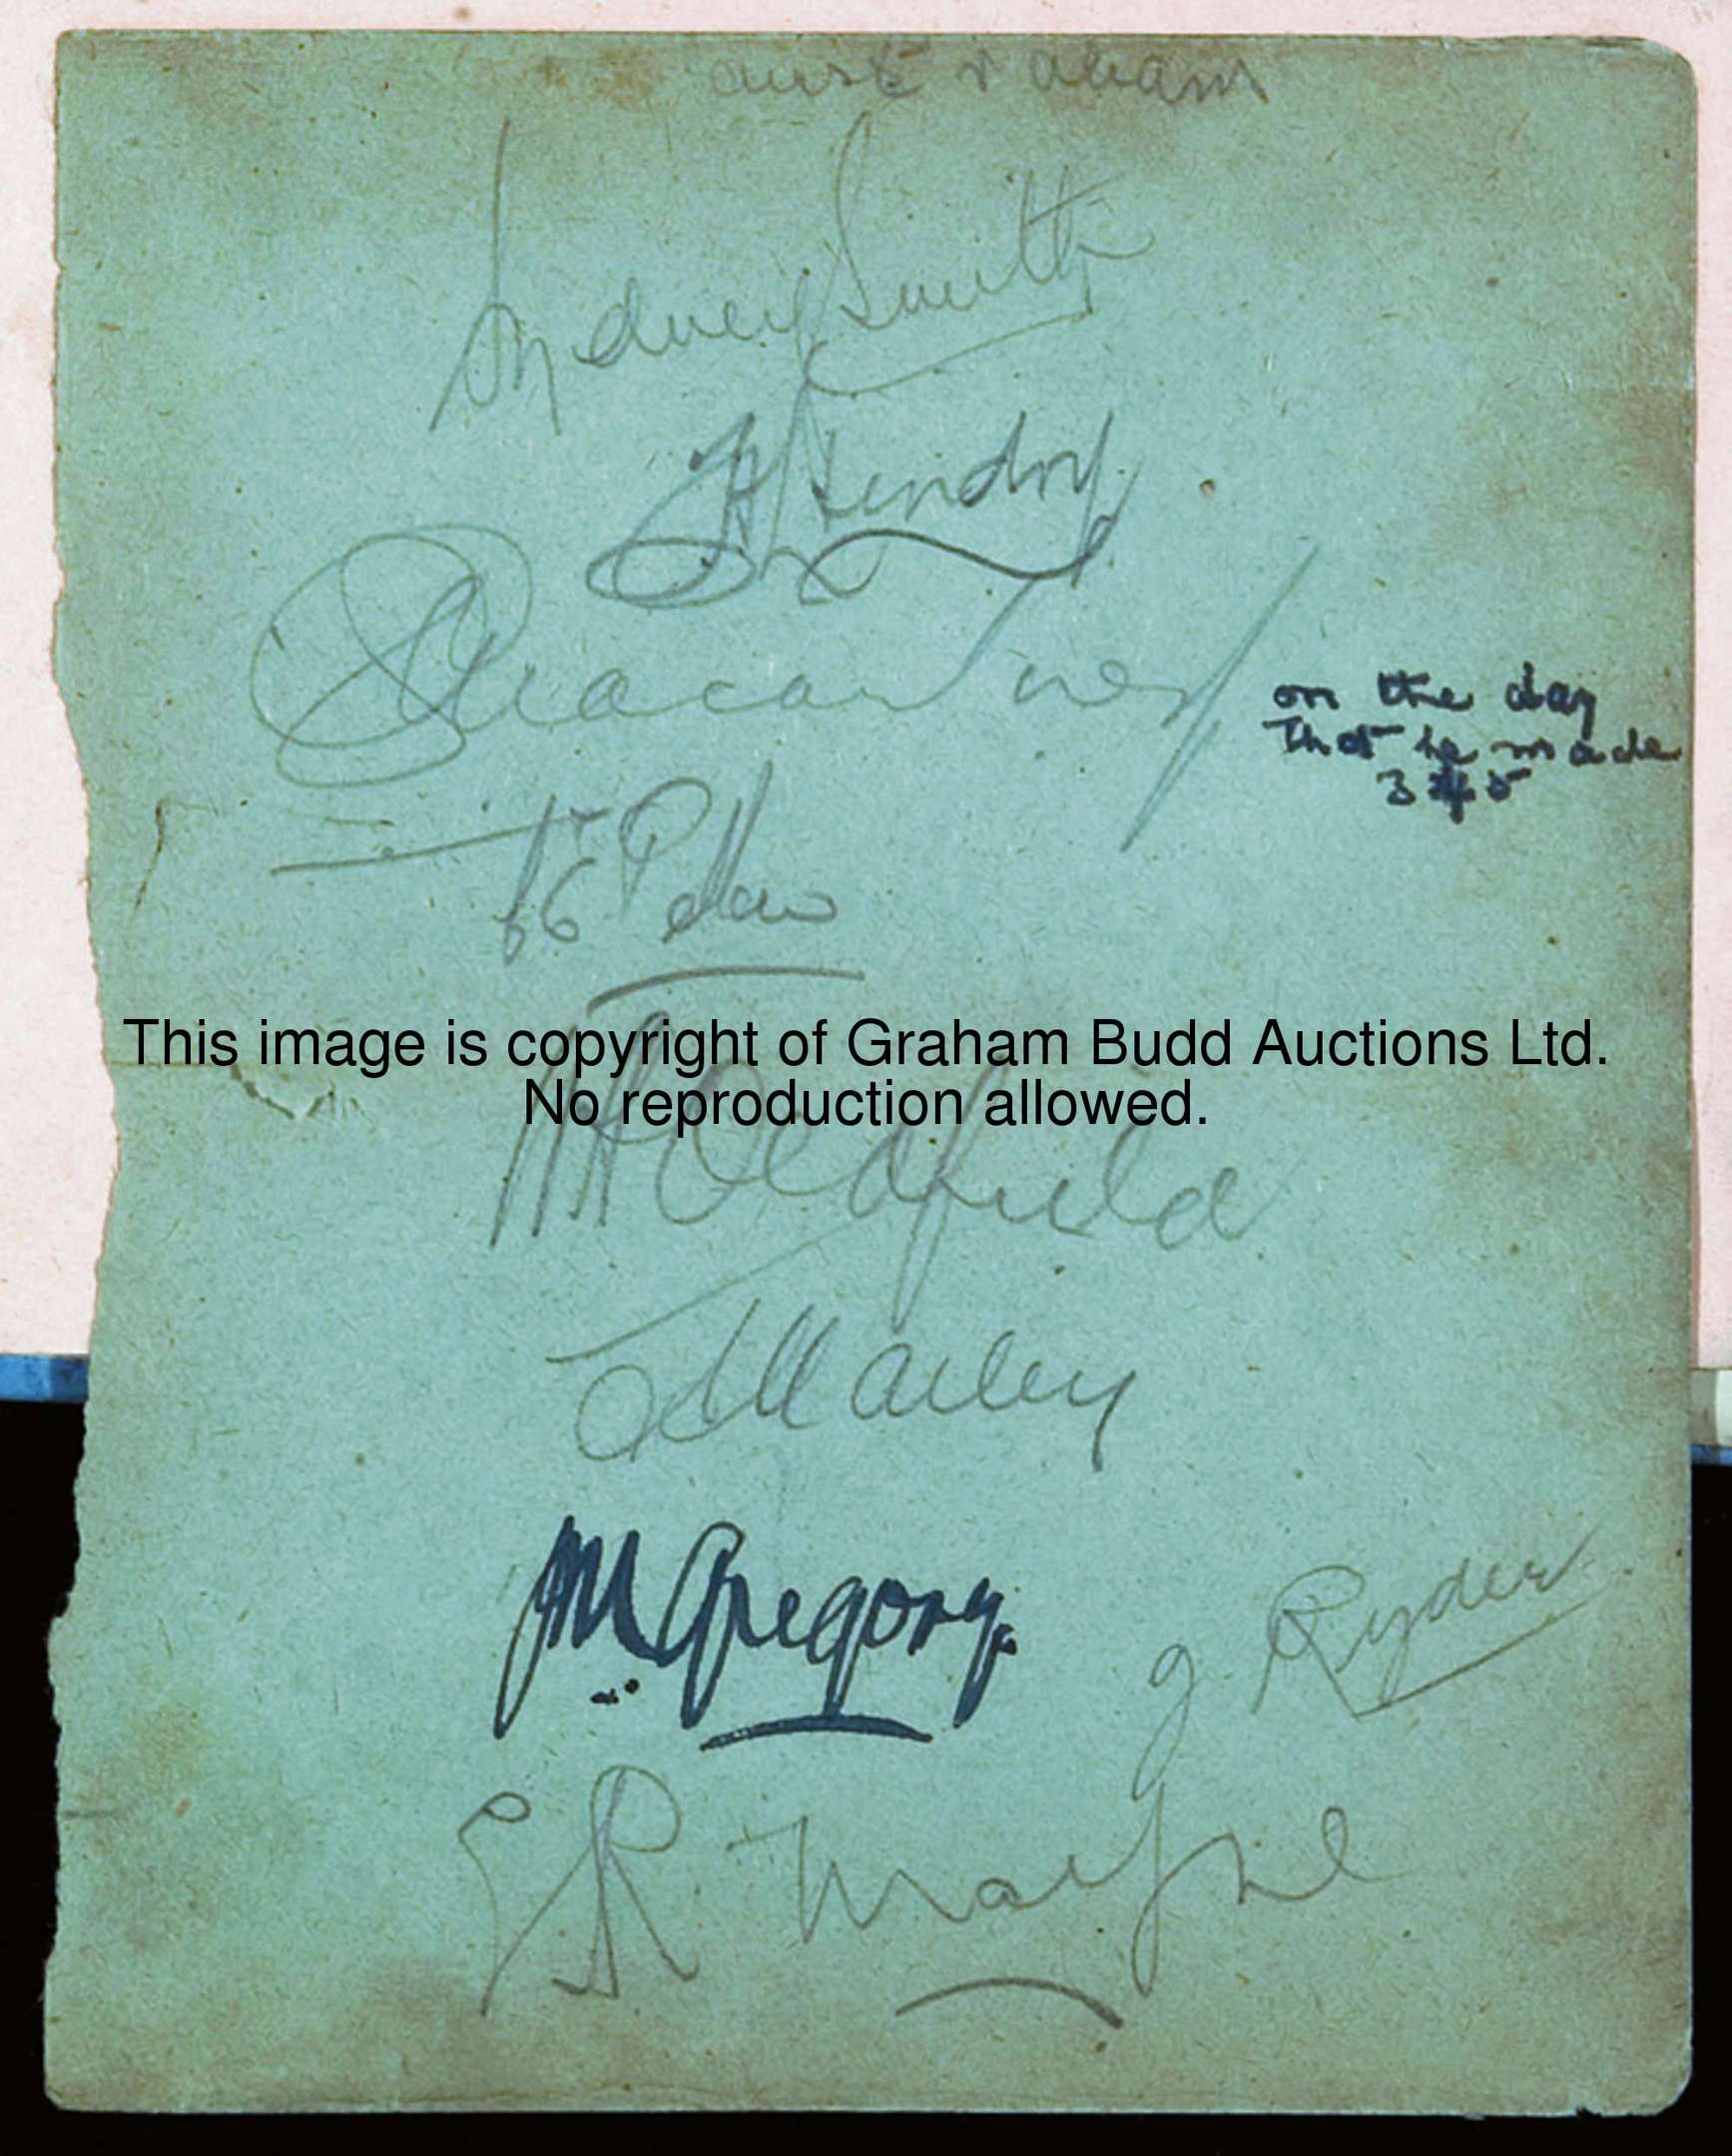 Sydney Smith
H Hendry
C G Macartney
on the day
that he made
345
C E Pellew
This image is copyright of Graham Budd Auctions Ltd.
No reproduction allowed.
W A Oldfield
A Mailey
J M Gregory.
J. Ryder
E R Mayne